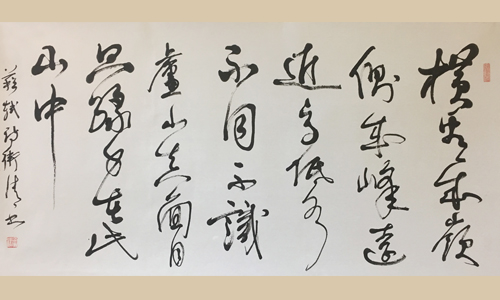 橫看成嶺
側成峰遠
近高低各
不同不識
廬山真面目
只緣身在此
山中
蘇軾詩衛清書